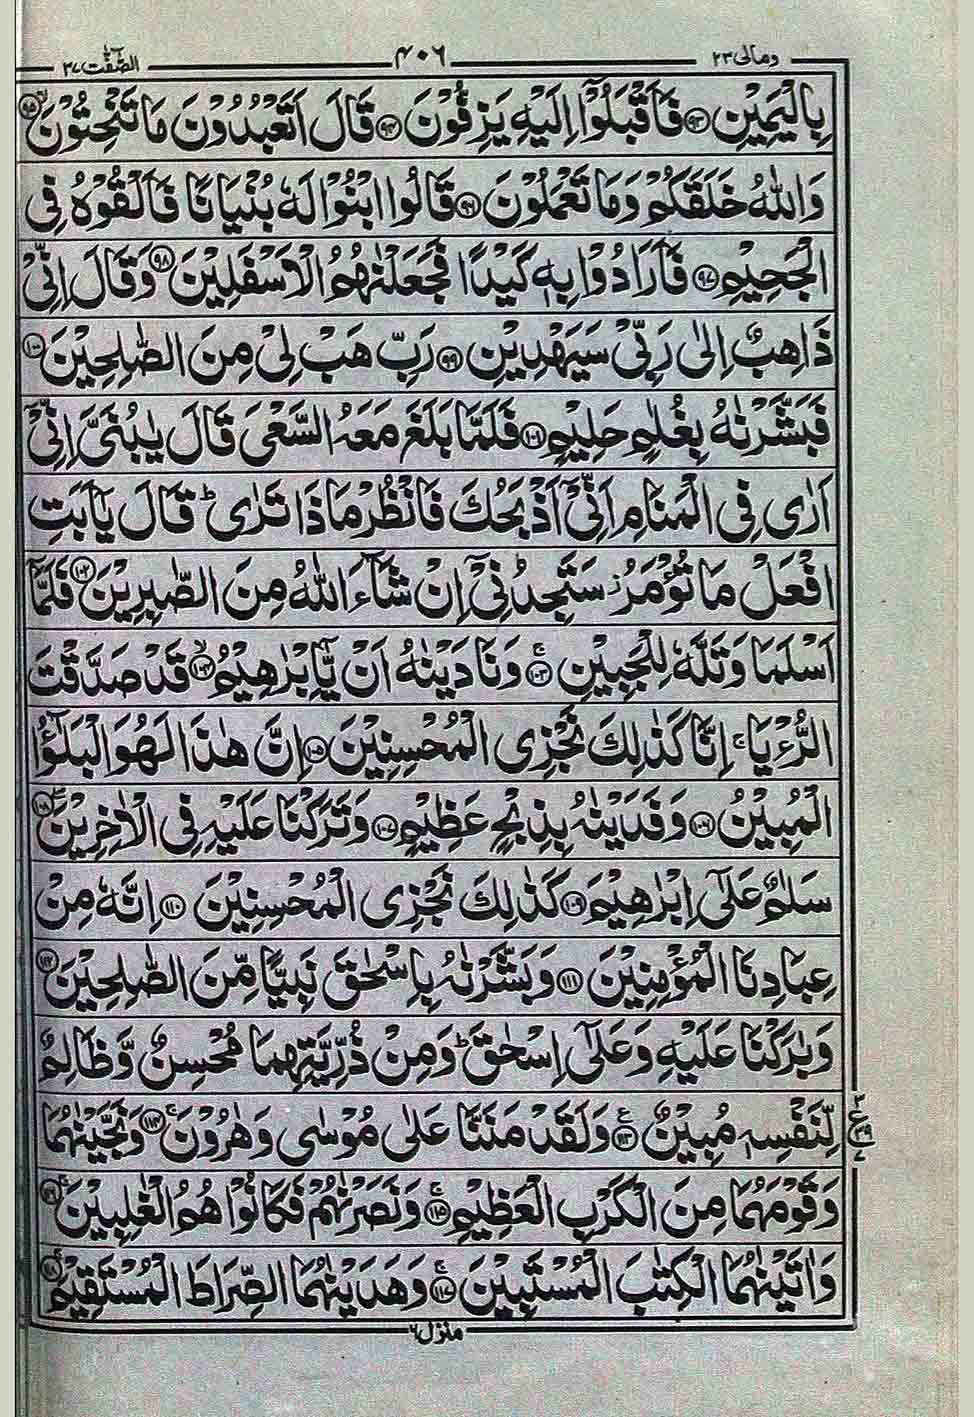 ومالی ٢٣ ٤٠٦ الصّٰفّٰت ٣٧
بِالۡيَمِيۡنِ ﴿٩٣﴾ فَاَقۡبَلُوۡۤا اِلَيۡهِ يَزِفُّوۡنَ ﴿٩٤﴾ قَالَ اَتَعۡبُدُوۡنَ مَا تَنۡحِتُوۡنَۙ ﴿٩٥﴾
وَاللّٰهُ خَلَقَكُمۡ وَمَا تَعۡمَلُوۡنَ ﴿٩٦﴾ قَالُوا ابۡنُوۡا لَهٗ بُنۡيَانًا فَاَلۡقُوۡهُ فِى
الۡجَحِيۡمِ ﴿٩٧﴾ فَاَرَادُوۡا بِهٖ كَيۡدًا فَجَعَلۡنٰهُمُ الۡاَسۡفَلِيۡنَ ﴿٩٨﴾ وَقَالَ اِنِّىۡ
ذَاهِبٌ اِلٰى رَبِّىۡ سَيَهۡدِيۡنِ ﴿٩٩﴾ رَبِّ هَبۡ لِىۡ مِنَ الصّٰلِحِيۡنَ ﴿١٠٠﴾
فَبَشَّرۡنٰهُ بِغُلٰمٍ حَلِيۡمٍ ﴿١٠١﴾ فَلَمَّا بَلَغَ مَعَهُ السَّعۡىَ قَالَ يٰبُنَىَّ اِنِّىۡۤ
اَرٰى فِى الۡمَنَامِ اَنِّىۡۤ اَذۡبَحُكَ فَانْظُرۡ مَاذَا تَرٰىؕ قَالَ يٰۤاَبَتِ
افۡعَلۡ مَا تُؤۡمَرُ سَتَجِدُنِىۡۤ اِنۡ شَآءَ اللّٰهُ مِنَ الصّٰبِرِيۡنَ ﴿١٠٢﴾ فَلَمَّاۤ
اَسۡلَمَا وَتَلَّهٗ لِلۡجَبِيۡنِۚ ﴿١٠٣﴾ وَنَادَيۡنٰهُ اَنۡ يّٰۤاِبۡرٰهِيۡمُۙ ﴿١٠٤﴾ قَدۡ صَدَّقۡتَ
الرُّءۡيَاۚ اِنَّا كَذٰلِكَ نَجۡزِى الۡمُحۡسِنِيۡنَ ﴿١٠٥﴾ اِنَّ هٰذَا لَهُوَ الۡبَلٰٓؤُا
الۡمُبِيۡنُ ﴿١٠٦﴾ وَفَدَيۡنٰهُ بِذِبۡحٍ عَظِيۡمٍ ﴿١٠٧﴾ وَتَرَكۡنَا عَلَيۡهِ فِى الۡاٰخِرِيۡنَ ﴿١٠٨﴾
سَلٰمٌ عَلٰٓى اِبۡرٰهِيۡمَ ﴿١٠٩﴾ كَذٰلِكَ نَجۡزِى الۡمُحۡسِنِيۡنَ ﴿١١٠﴾ اِنَّهٗ مِنۡ
عِبَادِنَا الۡمُؤۡمِنِيۡنَ ﴿١١١﴾ وَبَشَّرۡنٰهُ بِاِسۡحٰقَ نَبِيًّا مِّنَ الصّٰلِحِيۡنَ ﴿١١٢﴾
وَبٰرَكۡنَا عَلَيۡهِ وَعَلٰٓى اِسۡحٰقَؕ وَمِنۡ ذُرِّيَّتِهِمَا مُحۡسِنٌ وَّظَالِمٌ
لِّنَفۡسِهٖ مُبِيۡنٌ ﴿١١٣﴾ وَلَقَدۡ مَنَنَّا عَلٰى مُوۡسٰى وَهٰرُوۡنَۚ ﴿١١٤﴾ وَنَجَّيۡنٰهُمَا
وَقَوۡمَهُمَا مِنَ الۡكَرۡبِ الۡعَظِيۡمِۚ ﴿١١٥﴾ وَنَصَرۡنٰهُمۡ فَكَانُوۡا هُمُ الۡغٰلِبِيۡنَۚ ﴿١١٦﴾
وَاٰتَيۡنٰهُمَا الۡكِتٰبَ الۡمُسۡتَبِيۡنَۚ ﴿١١٧﴾ وَهَدَيۡنٰهُمَا الصِّرَاطَ الۡمُسۡتَقِيۡمَۚ ﴿١١٨﴾
منزل ٦